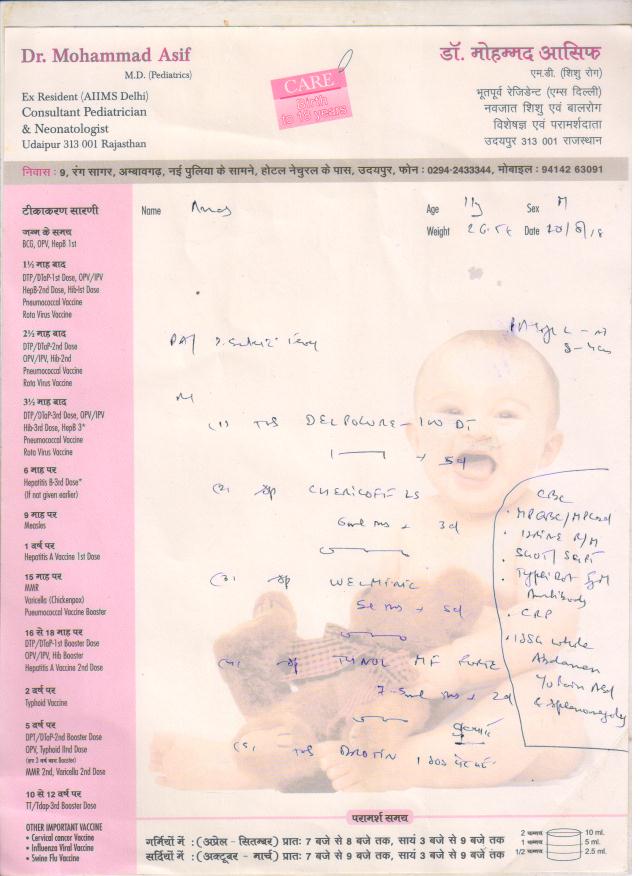 Dr. Mohammad Asif
M.D. (Pediatrics)
Ex Resident (AIIMS Delhi)
Consultant Pediatrician
& Neonatologist
Udaipur 313 001 Rajasthan
CARE
Birth
to 18 years
डॉ. मोहम्मद आसिफ
एम.डी. (शिशु रोग)
भूतपूर्व रेजिडेन्ट (एम्स दिल्ली)
नवजात शिशु एवं बालरोग
विशेषज्ञ एवं परामर्शदाता
उदयपुर 313 001 राजस्थान
निवास : 9, रंग सागर, अम्बावगढ़, नई पुलिया के सामने, होटल नेचुरल के पास, उदयपुर, फोन : 0294-2433344, मोबाइल : 94142 63091
Name Age 11y Sex M
Weight Date 20/8/18
टीकाकरण सारणी
जन्म के समय
BCG, OPV, HepB 1st
1½ माह बाद
DTP/DTaP-1st Dose, OPV/IPV
HepB-2nd Dose, Hib-Ist Dose
Pneumococcal Vaccine
Rota Virus Vaccine
2½ माह बाद
DTP/DTaP-2nd Dose
OPV/IPV, Hib-2nd
Pneumococcal Vaccine
Rota Virus Vaccine
3½ माह बाद
DTP/DTaP-3rd Dose, OPV/IPV
Hib-3rd Dose, HepB 3*
Pneumococcal Vaccine
Rota Virus Vaccine
6 माह पर
Hepatitis B-3rd Dose*
(If not given earlier)
9 माह पर
Measles
1 वर्ष पर
Hepatitis A Vaccine 1st Dose
15 माह पर
MMR
Varicella (Chickenpox)
Pueumococcal Vaccine Booster
16 से 18 माह पर
DTP/DTaP-1st Booster Dose
OPV/IPV, Hib Booster
Hepatitis A Vaccine 2nd Dose
2 वर्ष पर
Typhoid Vaccine
5 वर्ष पर
DPT/DTaP-2nd Booster Dose
OPV, Typhoid IInd Dose
(हर 3 वर्ष बाद Booster)
MMR 2nd, Varicella 2nd Dose
10 से 12 वर्ष पर
TT/Tdap-3rd Booster Dose
OTHER IMPORTANT VACCINE
• Cervical cancer Vaccine
• Influenza Viral Vaccine
• Swine Flu Vaccine
(1) DT
5d
(2)
3d
(3)
5d
(4) MF FORTE
2d
(5)
CBC
• URINE R/M
• SGOT/SGPT
• Typhidot IgM
Antibody
• CRP
• USG whole
Abdomen
& Splenomegaly
परामर्श समय
गर्मियों में : (अप्रेल - सितम्बर) प्रातः 7 बजे से 8 बजे तक, सायं 3 बजे से 9 बजे तक
सर्दियों में : (अक्टूबर - मार्च) प्रातः 7 बजे से 9 बजे तक, सायं 3 बजे से 9 बजे तक
2 चम्मच 10 ml.
1 चम्मच 5 ml.
1/2 चम्मच 2.5 ml.